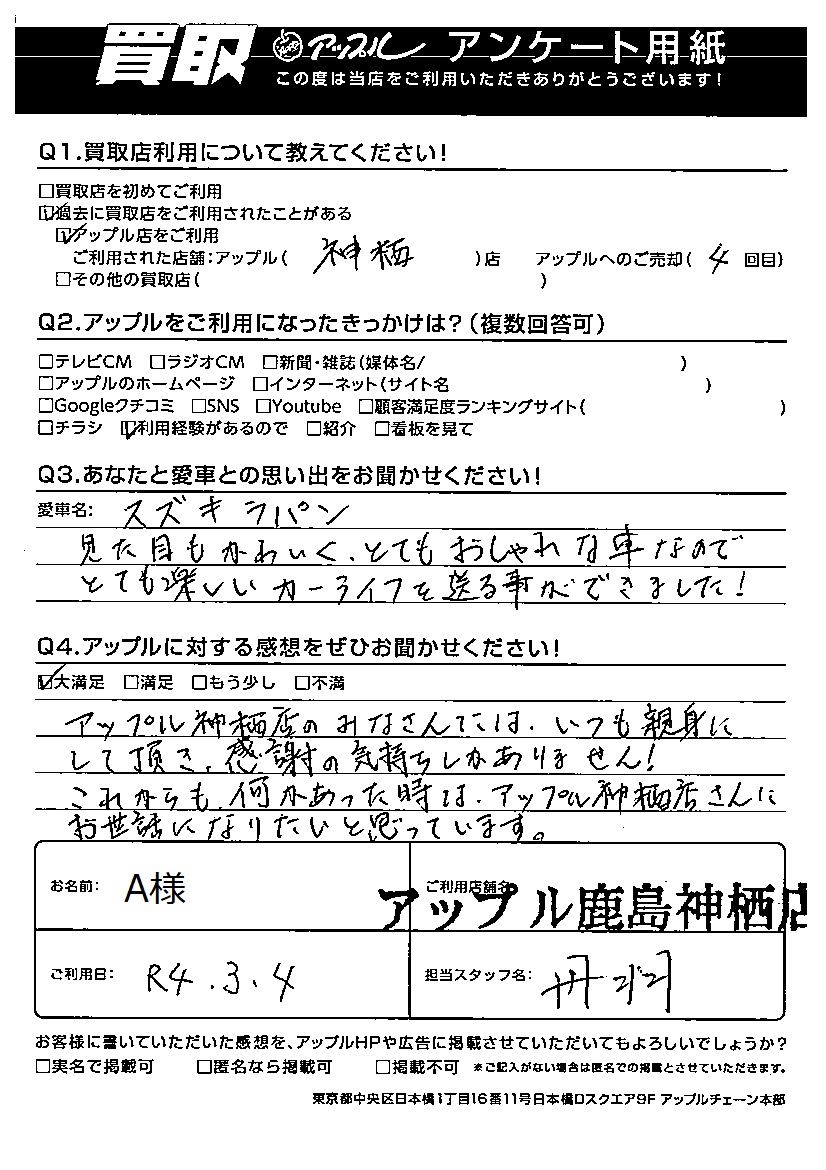 買取 アップル アンケート用紙
この度は当店をご利用いただきありがとうございます!
Q1.買取店利用について教えてください!
□買取店を初めてご利用
☑過去に買取店をご利用されたことがある
☑アップル店をご利用
ご利用された店舗:アップル( 神栖 )店 アップルへのご売却( 4 回目)
□その他の買取店( )
Q2.アップルをご利用になったきっかけは?(複数回答可)
□テレビCM □ラジオCM □新聞・雑誌(媒体名/ )
□アップルのホームページ □インターネット(サイト名 )
□Googleクチコミ □SNS □Youtube □顧客満足度ランキングサイト( )
□チラシ ☑利用経験があるので □紹介 □看板を見て
Q3.あなたと愛車との思い出をお聞かせください!
愛車名: スズキ ラパン
見た目もかわいく、とてもおしゃれな車なので
とても楽しいカーライフを送る事ができました!
Q4.アップルに対する感想をぜひお聞かせください!
☑大満足 □満足 □もう少し □不満
アップル神栖店のみなさんには、いつも親身に
して頂き、感謝の気持ちしかありません!
これからも、何かあった時は、アップル神栖店さんに
お世話になりたいと思っています。
お名前: A様
ご利用店舗名
アップル鹿島神栖店
ご利用日: R4.3.4
担当スタッフ名:
お客様に書いていただいた感想を、アップルHPや広告に掲載させていただいてもよろしいでしょうか?
□実名で掲載可 □匿名なら掲載可 □掲載不可 ※ご記入がない場合は匿名での掲載とさせていただきます。
東京都中央区日本橋1丁目16番11号日本橋ロスクエア9F アップルチェーン本部